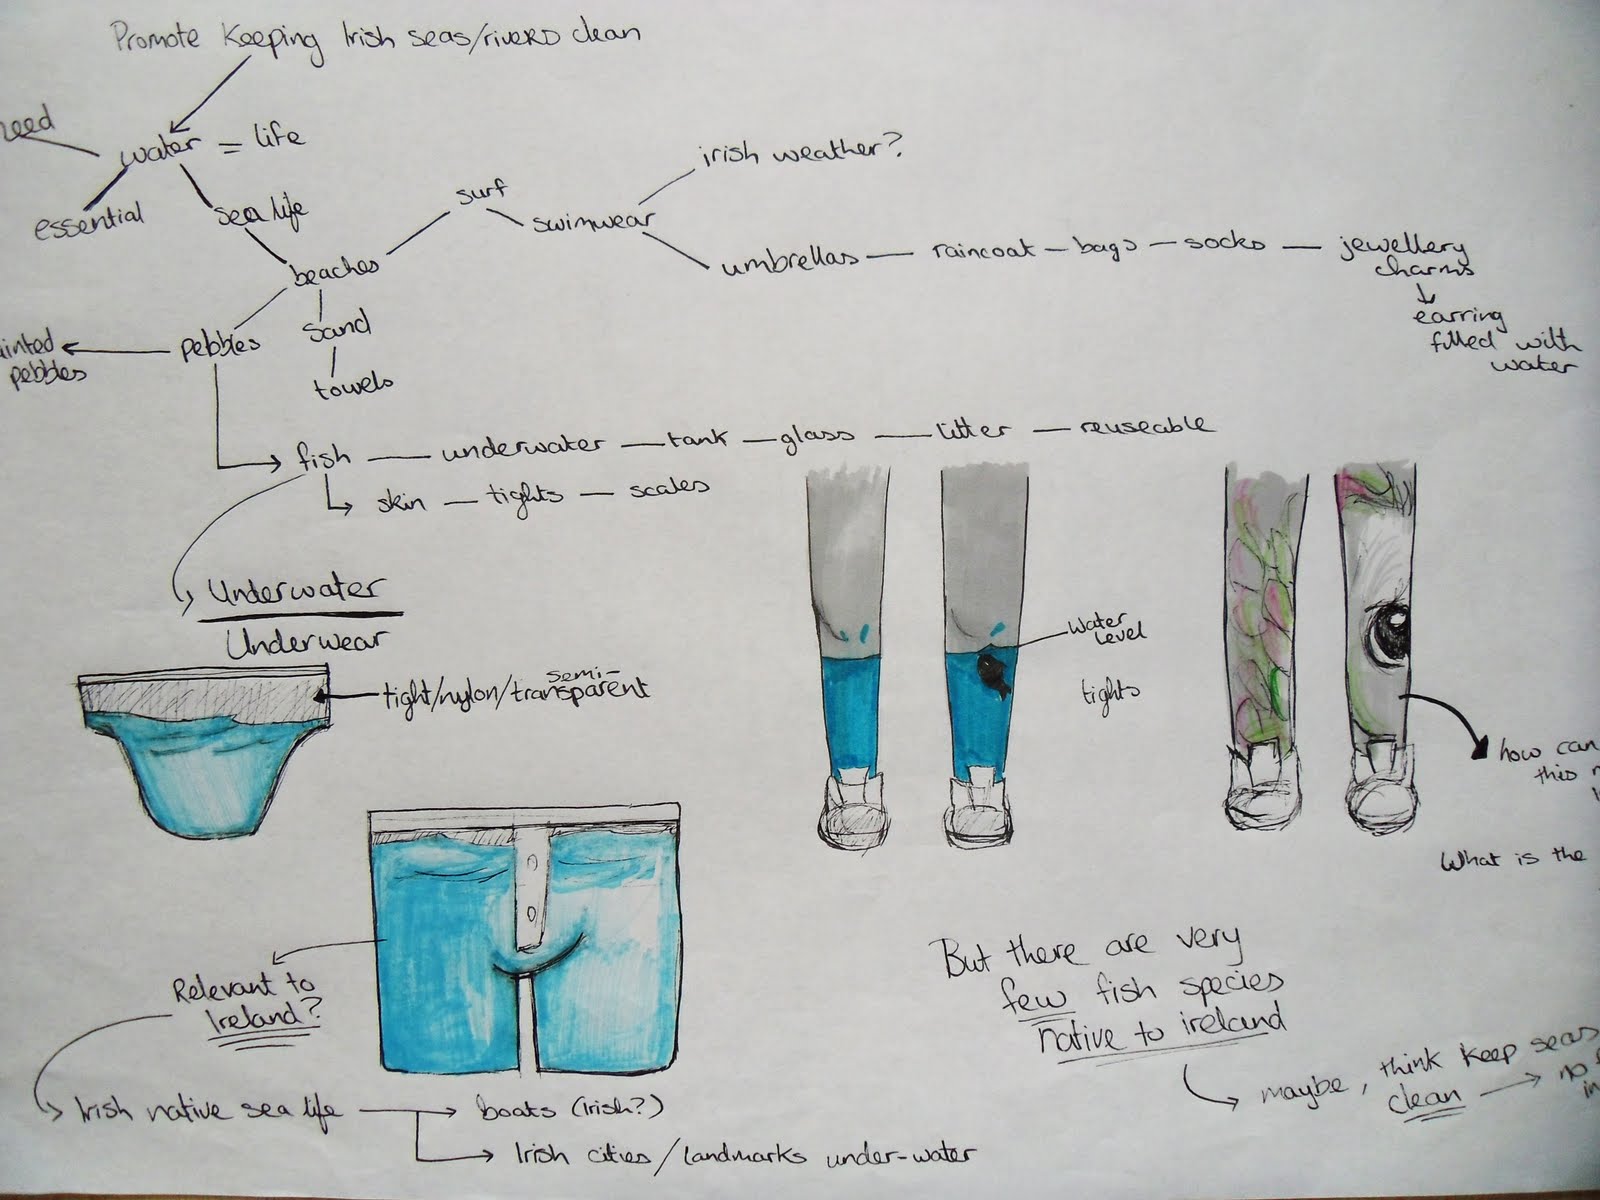 Promote Keeping Irish seas/rivers clean
need
water = life
essential
sea life
beaches
surf
swimwear
irish weather?
umbrellas — raincoat — bags — socks — jewellery
charms
earring
filled with
water
pebbles
sand
towels
pebbles
fish — underwater — tank — glass — litter — reuseable
skin — tights — scales
Underwater
Underwear
semi-
tight/nylon/transparent
water
level
tights
how can
this
What is the
Relevant to
Ireland?
But there are very
few fish species
native to ireland
maybe, think keep seas
clean
no
in
Irish native sea life
boats (Irish?)
Irish cities/landmarks under-water